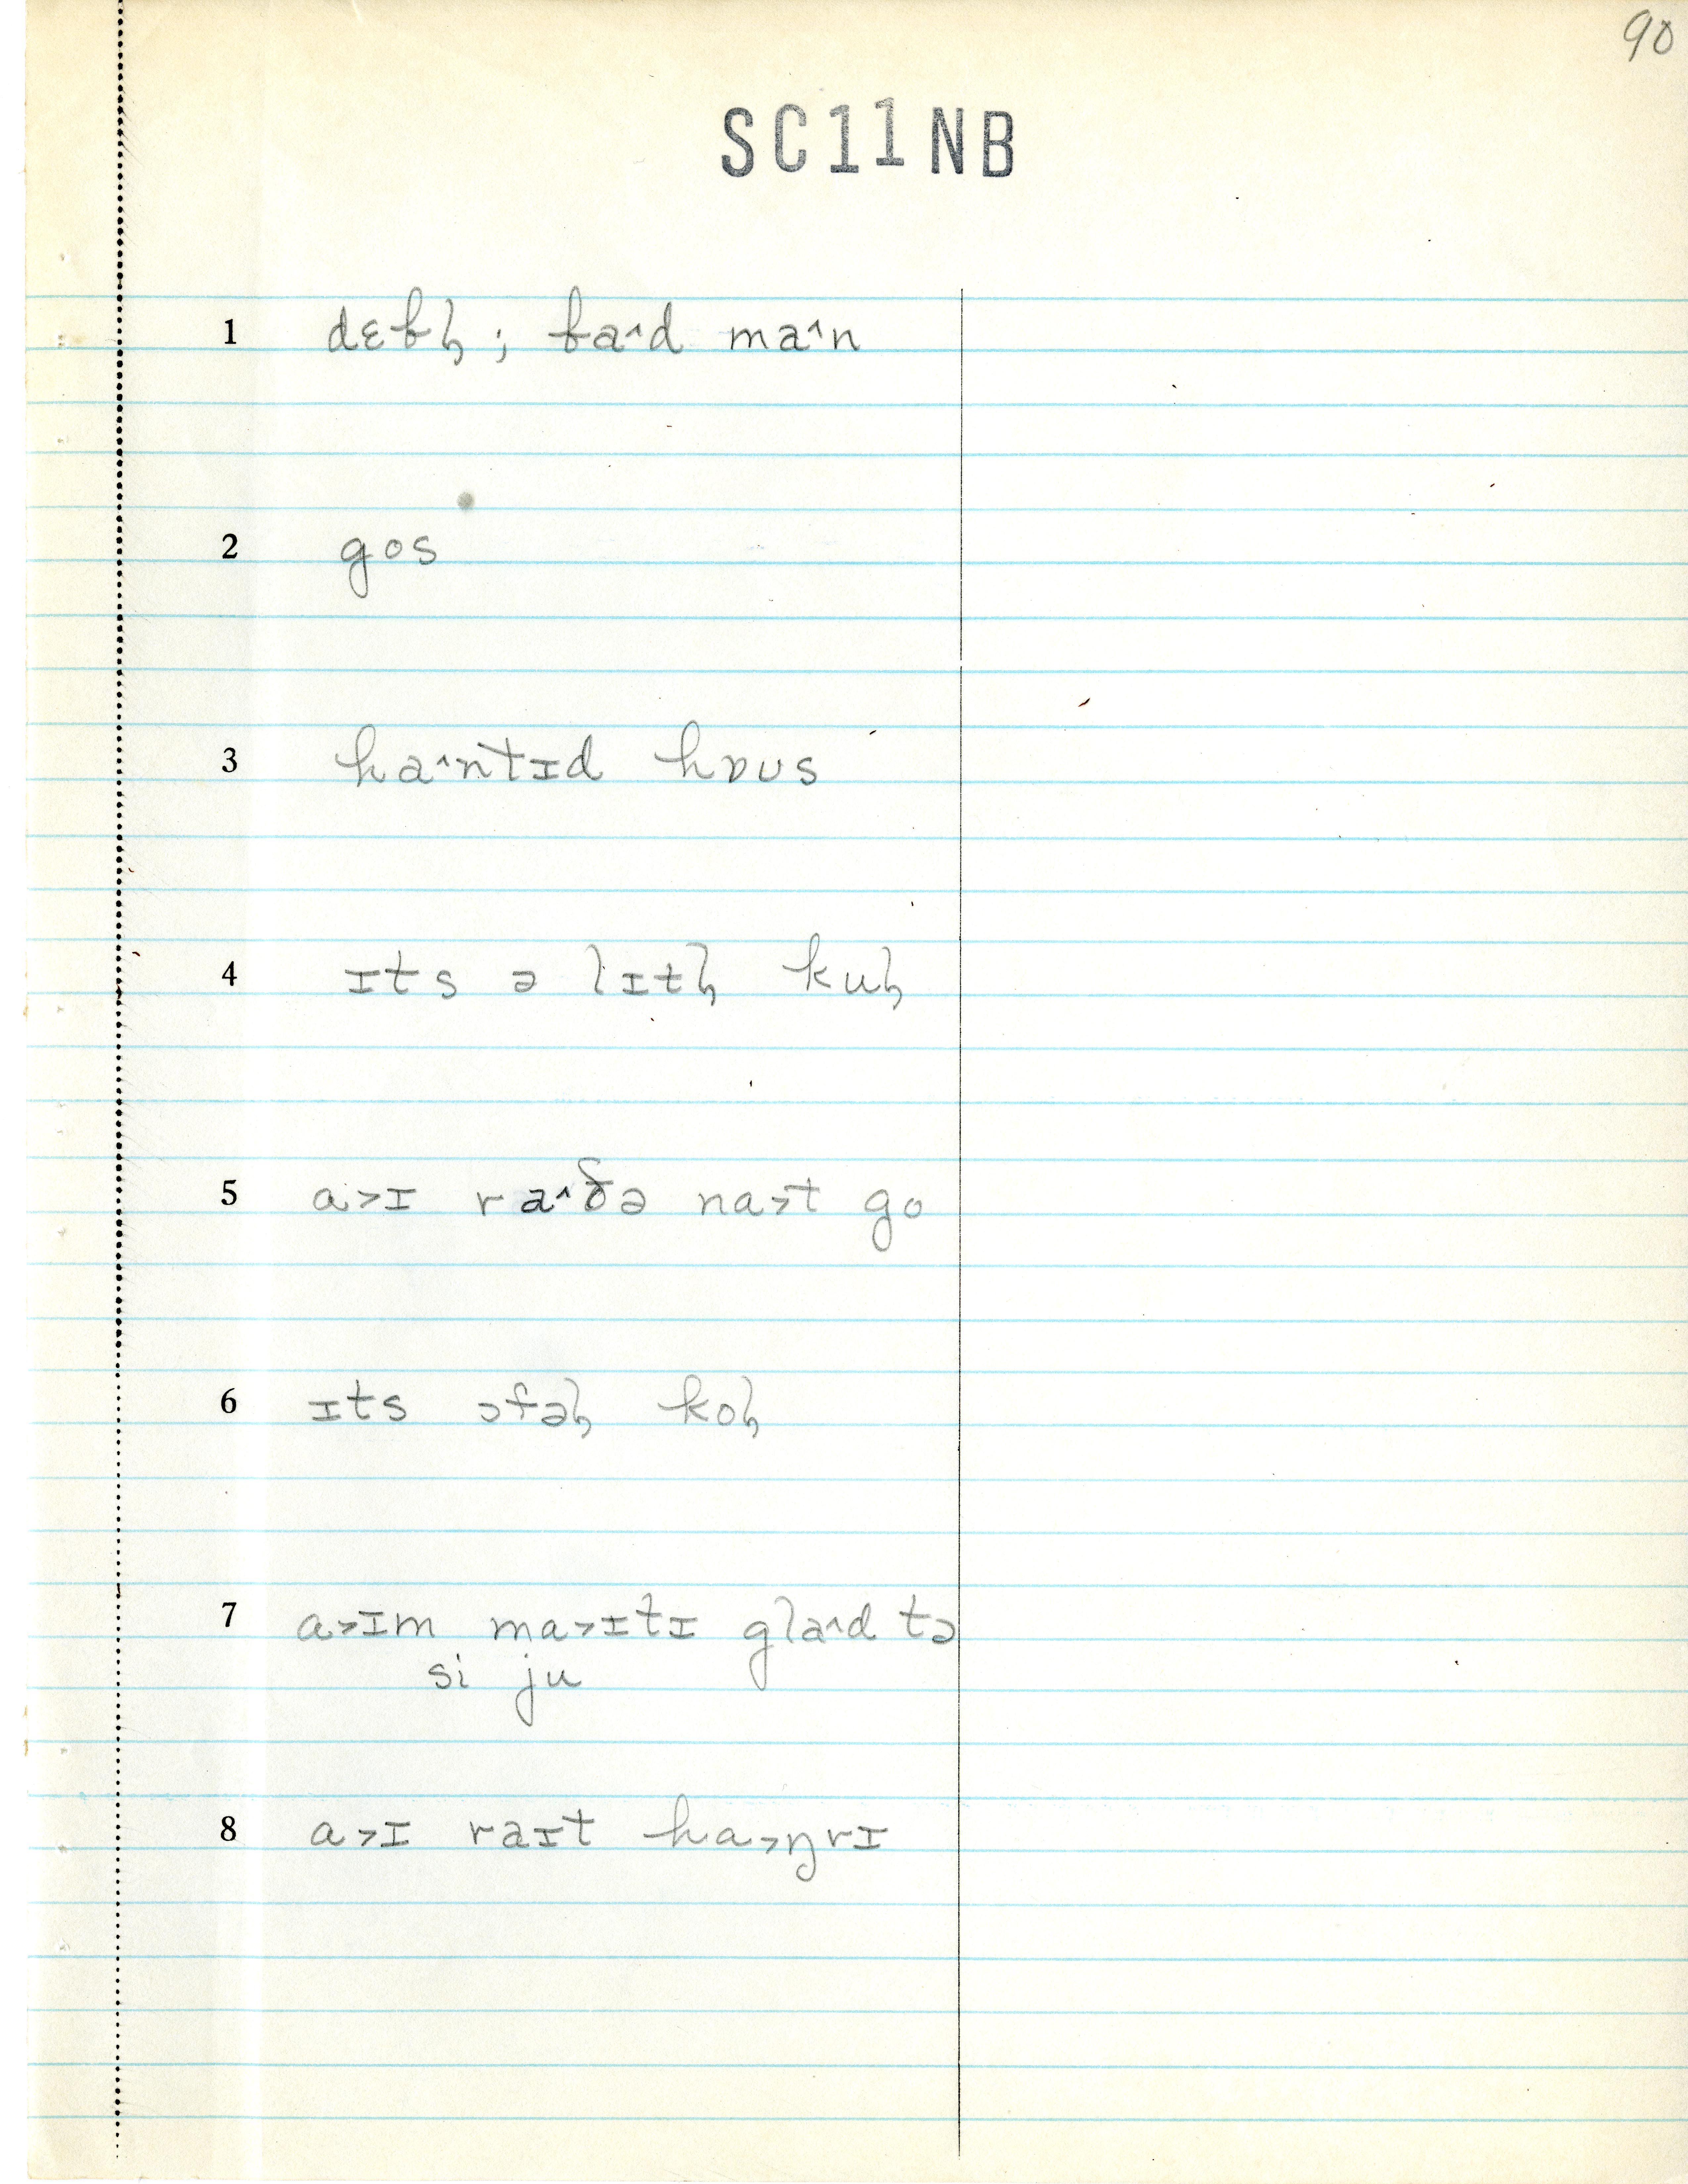 90
SC11NB
1 dɛbl̩ ; ba^d ma^n
2 gos
3 ha^ntɪd hɒʊs
4 ɪts ə lɪtl̩ kul̩
5 ɑ>ɪ ra^ðə nɑ>t go
6 ɪts ɔfəl̩ kol̩
7 ɑ>ɪm mɑ>ɪtɪ gla^d tə
si ju
8 ɑ>ɪ raɪt hɑ>ŋrɪ